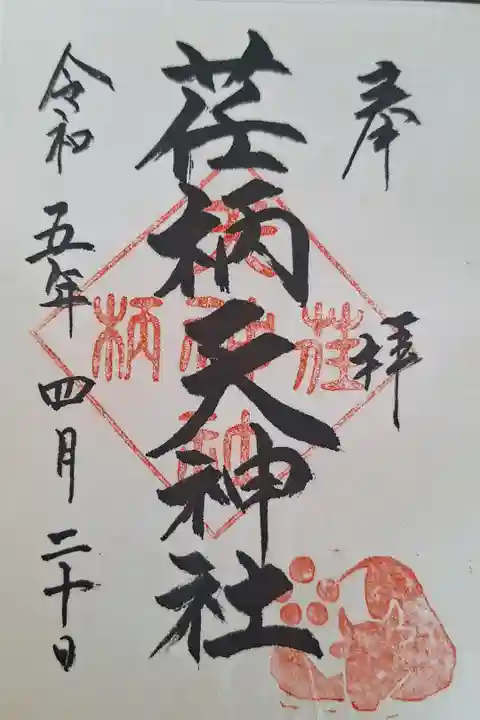 奉拝
荏柄天神社
令和五年四月二十日
荏柄